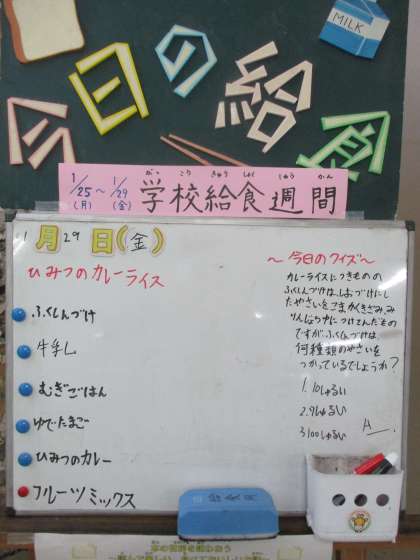 今日の給食
MILK
1/25(月)～1/29(金)
学校給食週間
がっこうきゅうしょくしゅうかん
1月29日(金)
ひみつのカレーライス
ふくじんづけ
牛乳
むぎごはん
ゆでたまご
ひみつのカレー
フルーツミックス
～今日のクイズ～
カレーライスにつきものの
ふくじんづけは、しおづけにし
たやさいをこまかくきざみ、み
りんじょうゆにつけこんだもの
ですが、ふくじんづけは
何種類のやさいを
つかっているでしょうか?
1.10しゅるい
2.9しゅるい
3.100しゅるい
A